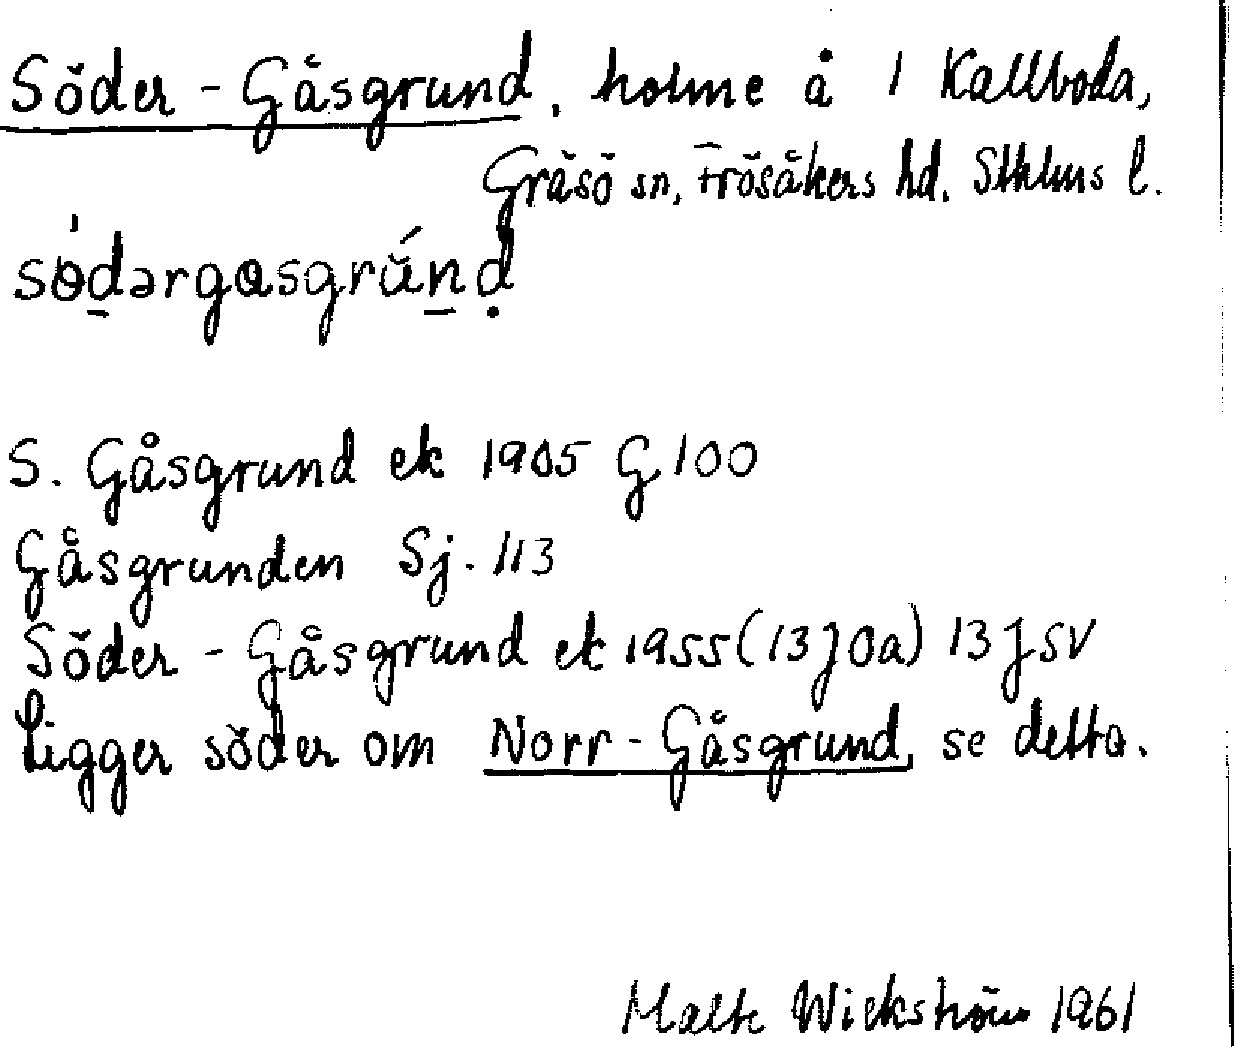 Söder-Gåsgrund, holme å 1 Kallboda,
Gräsö sn, Frösåkers hd. Sthlms l.
sɵ́dərgɑsgrúnd
S. Gåsgrund ek 1905 G 100
Gåsgrunden Sj. 113
Söder-Gåsgrund ek 1955 (13J0a) 13JSV
Ligger söder om Norr-Gåsgrund, se detta.
Malte Wickström 1961